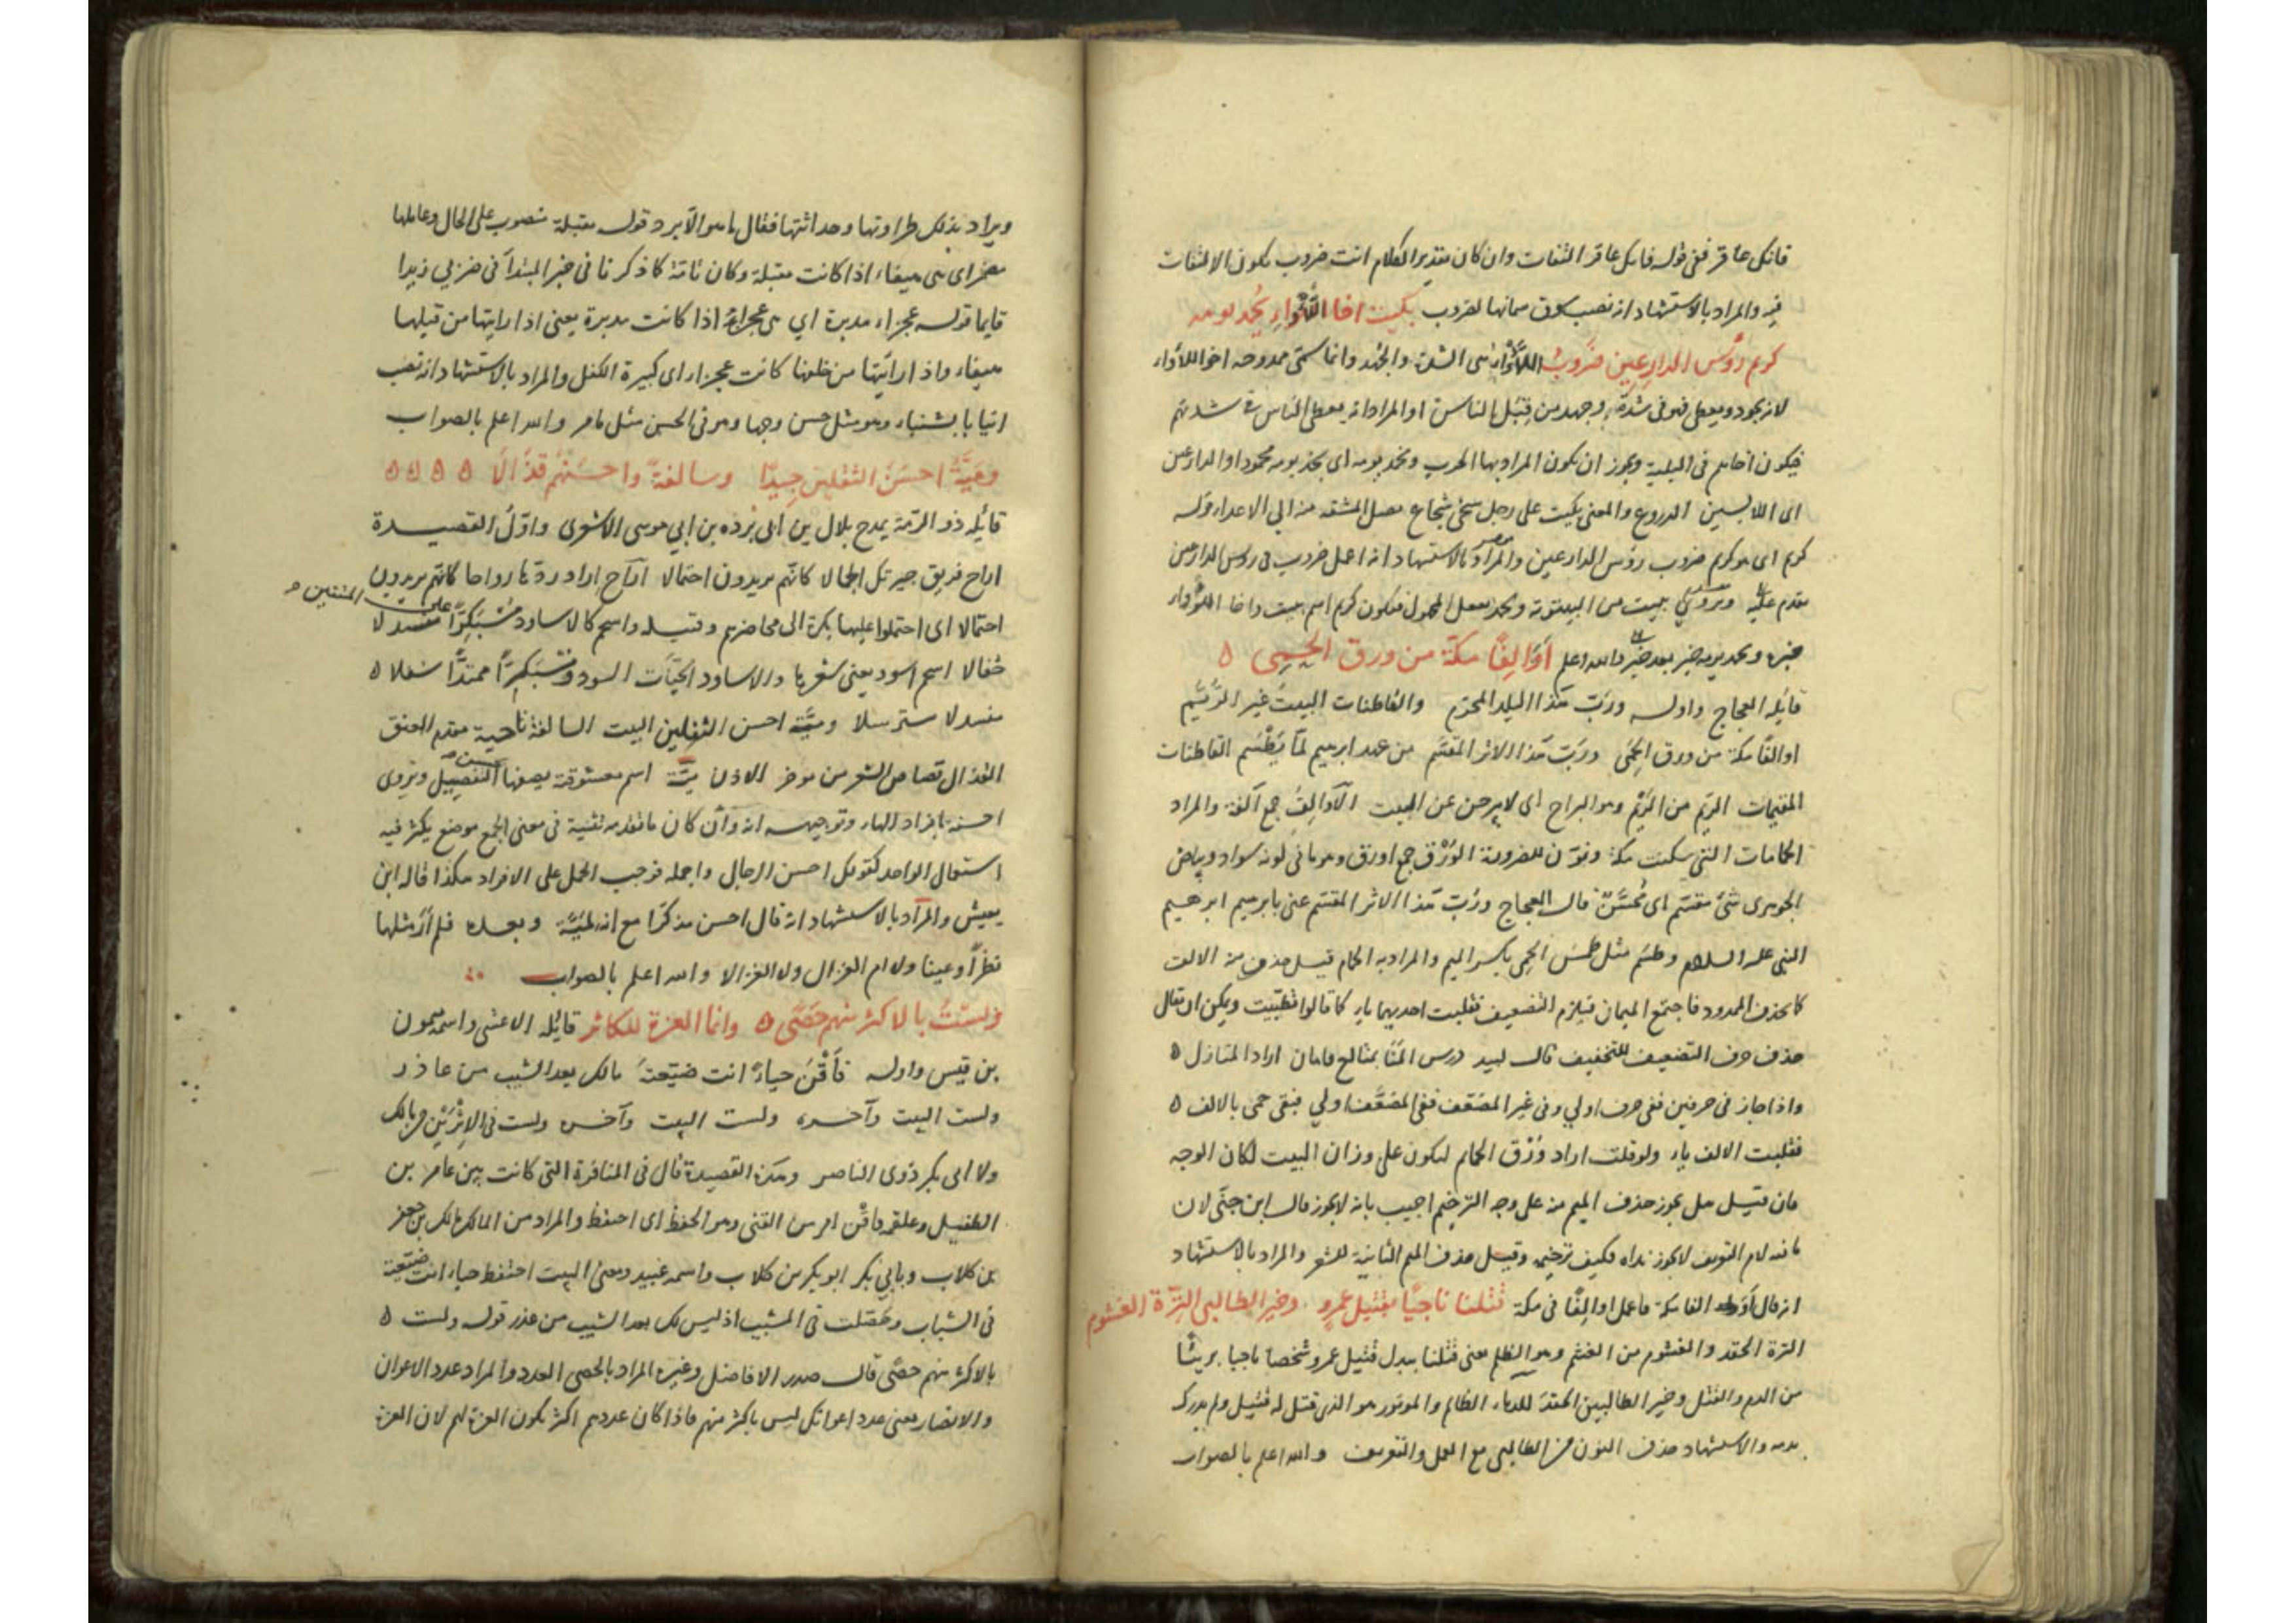 فانك عاقر ففى قوله فانك عاقر التفات وان كان تقدير الكلام انت ضروب يكون الالتفات
فيه والمراد بالاستشهاد انه نصب سوق سمانها لضروب بكيت اخا اللأواء يُحمد يومه
كريم رؤس الدارعين ضروبُ اللأواء هى الشدة والجهد وانما سمى ممدوحه اخا اللأواء
لانه يجود ويعطى فهو فى شدة وجهد من قِبَل الناس او المراد انه يعطى الناس فى شدتهم
فيكون اخاهم فى البلية ويجوز ان يكون المراد بها الحرب ويحمد يومه اى يجد يومه محمودا والدارعين
اى اللابسين الدروع والمعنى بكيت على رجل سخى شجاع الى الاعداء قوله
كريم اى هو كريم ضروب رؤس الدارعين والمراد بالاستشهاد انه اعمل ضروب فى روس الدارعين
مقدم عليه ويروى يبيت من البيتوتة فيكون كريم اسم يبيت واخا اللأواء
خبره ويحمد يومه خبر بعد خبر والله اعلم أَوَالِفًا مكةَ من ورق الحَمِى ه
قائله العجاج واوله وربّ هذا البلد المحرّم والقاطنات البيتَ غير الرُّيَّم
اوالفًا مكة من ورق الحَمِى وربّ هذا الاثر المقسَّم من عهد ابرهيم لمّا يُطْسَم القاطنات
المقيمات الريّم من الرَّيْم وهو البراح اى لا يبرحن عن البيت الأوالِفُ جمع آلفة والمراد
الحمامات التى سكنت مكة ونوّن للضرورة الوُرْق جمع اورق وهو ما فى لونه سواد وبياض
الجوهرى شئ مقسّم اى مُحسَّنٌ قال العجاج وربّ هذا الاثر المقسّم عنى بابرهيم ابرهيم
النبى عليه السلام وطسَم مثل طمسَ الحَمِى بكسر الميم والمراد به الحمام قيل حذف منه الالف
كما يحذف الممدود فاجتمع الميمان فيلزم التضعيف فقلبت احديهما ياء كما قالوا تظنّيت ويمكن ان يقال
حذف حرف التضعيف للتخفيف قال لبيد درس المَنَا بمتالع فابان اراد المنازل ه
واذا جاز فى حرفين ففى حرف اولى وفى غير المضعّف ففى المضعّف اولى فبقى حمى بالالف ه
فقلبت الالف ياء ولو قلت اراد وُرْق الحمام ليكون على وزان البيت لكان الوجه
فان قيل هل يجوز حذف الميم منه على وجه الترخيم اجيب بانه لا يجوز قال ابن جنّى لان
ما فيه لام التعريف لا يجوز نداه فكيف ترخيمه وقيل حذف الميم الثانية للشعر والمراد بالاستشهاد
انه قال فاعمل اوالِفًا فى مكة قتلنا ناجيًا بقتيل عمرٍو وخير الطالبى التِرَة الغشوم
الترة الحقد والغشوم من الغشم وهو الظلم يعنى قتلنا ببدل قتيل عمرو شخصا ناجيا بريئًا
من الدم والقتل وخير الطالبين الحقدَ للدماء الظالم والموتور هو الذى قتل له قتيل ولم يدرك
بدمه والاستشهاد حذف النون من الطالبى مع العمل والتعريف والله اعلم بالصواب
ويراد بذلك طراوتها وحداثتها فقال ما هو الّا برد قوله مقبلة منصوب على الحال وعاملها
مضمر اى هى هيفاء اذا كانت مقبلة وكان تامّة كما ذكرنا فى خبر المبتدأ فى ضربى زيدا
قايما قوله عجزاء مدبرة اى هى عجزاء اذا كانت مدبرة يعنى اذا رايتها من قبلها
هيفاء واذا رأيتها من خلفها كانت عجزاء اى كبيرة الكفل والمراد بالاستشهاد انه نصب
انيابا بشنباء وهو مثل حسن وجها وهو فى الحسن مثل ما مر والله اعلم بالصواب
وميّةُ احسَنُ الثقلين جِيدًا وسالفةً واحسَنُهم قذالا ه ه ه ه
قائله ذو الرمّة يمدح بلال بن ابى بُرده بن ابى موسى الاشعرى واوّلُ القصيدة
اراح فريق جيرتك الجمالا كانّهم يريدون احتمالا اراح اراد ردّها رواحا كانهم يريدون
احتمالا اى احتملوا عليها بكرة الى محاضرهم وقبله واسحم كالاساود مسبَكِرًّا على المتنين منسدلا
جفالا اسحم اسود يعنى شعرها والاساود الحيّات السود ومسبَكِرًّا ممتدًّا ه
منسدلا مسترسلا وميّة احسن الثقلين البيت السالفة ناحية مقدم العنق
القذال قصاص الشعر من موخر الاذن ميّة اسم معشوقة يصفها التفصيل ويروى
احسنه بافراد الهاء وتوجيهه انه وان كان ما تقدمه تثنية فى معنى الجمع موضع يكثر فيه
استعمال الواحد كقولك احسن الرجال واجمله فوجب الحمل على الافراد هكذا قاله ابن
يعيش والمراد بالاستشهاد انه قال احسن مذكّرا مع انه لميّة وبعده فلم أرَ مثلها
نظرًا وعينا ولا ام الغزال ولا الغزالا والله اعلم بالصواب
ولستُ بالاكثر منهم حَصًى ه وانما العزة للكاثر قائله الاعشى واسمه ميمون
بن قيس واوله فأقنَ حياءً انت ضيّعتَه مالك بعد الشيب من عاذر
ولست البيت وآخره ولست البيت وآخره ولست فى الاثرَيْن بمالك
ولا ابى بكر ذوى الناصر وهذه القصيدة قال فى المنافرة التى كانت بين عامر بن
الطفيل وعلقمه فاقْن امر من القنى وهو الحفظ اى احفظ والمراد من المالك مالك بن جعفر
بن كلاب وبابى بكر ابو بكر من كلاب واسمه عُبيد ومعنى البيت احتفظ حياء انت ضيّعته
فى الشباب وحصّلت فى المشيب اذ ليس لك بعد الشيب من عذر قوله ولست ه
بالاكثر منهم حصًى قال صدر الافاضل وغيره المراد بالحصى العدد والمراد عدد الاعوان
والانصار يعنى عدد اعوانك ليس باكثر منهم فاذا كان عددهم اكثر يكون العزة لهم لان العزة